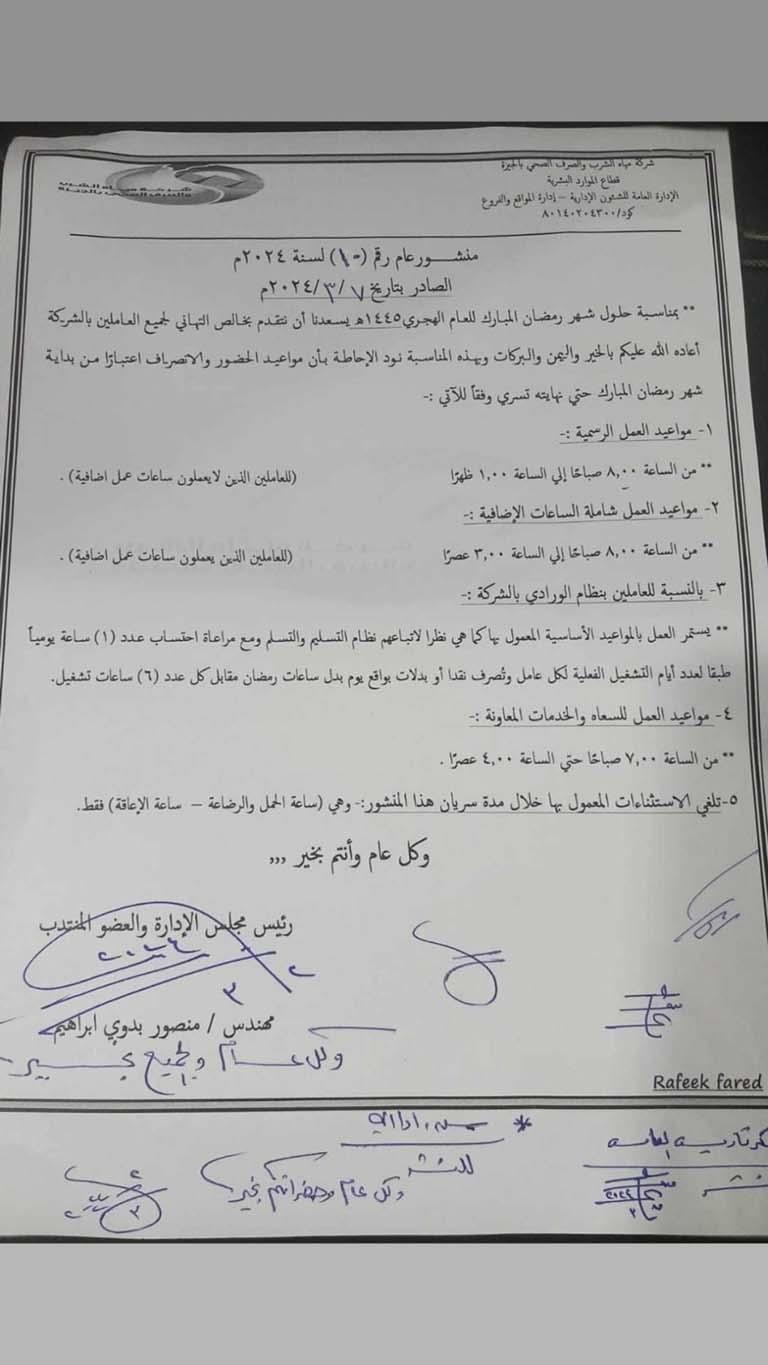 شركة مياه الشرب والصرف الصحي بالجيزة
قطاع الموارد البشرية
الإدارة العامة للشئون الإدارية – إدارة المواقع والفروع
كود/٨٠١٤٠٢٠٤٣٠٠
شركة مياه الشرب
والصرف الصحى بالجيزة
منشور عام رقم (١٠) لسنة ٢٠٢٤م
الصادر بتاريخ ٧/ ٣ /٢٠٢٤م
** بمناسبة حلول شهر رمضان المبارك للعام الهجري ١٤٤٥هـ يسعدنا أن نتقدم بخالص التهاني لجميع العاملين بالشركة
أعاده الله عليكم بالخير واليمن والبركات وبهذه المناسبة نود الإحاطة بأن مواعيد الحضور والانصراف اعتبارًا من بداية
شهر رمضان المبارك حتي نهايته تسري وفقاً للآتي :-
١- مواعيد العمل الرسمية :-
** من الساعة ٨,٠٠ صباحًا إلي الساعة ١,٠٠ ظهرًا (للعاملين الذين لايعملون ساعات عمل اضافية) .
٢- مواعيد العمل شاملة الساعات الإضافية :-
** من الساعة ٨,٠٠ صباحًا إلي الساعة ٣,٠٠ عصرًا (للعاملين الذين يعملون ساعات عمل اضافية) .
٣- بالنسبة للعاملين بنظام الورادي بالشركة :-
** يستمر العمل بالمواعيد الأساسية المعمول بها كما هي نظرا لاتباعهم نظام التسليم والتسلم ومع مراعاة احتساب عدد (١) ساعة يومياً
طبقا لعدد أيام التشغيل الفعلية لكل عامل وتُصرف نقدا أو بدلات بواقع يوم بدل ساعات رمضان مقابل كل عدد (٦) ساعات تشغيل.
٤- مواعيد العمل للسعاه والخدمات المعاونة :-
** من الساعة ٧,٠٠ صباحًا حتي الساعة ٤,٠٠ عصرًا .
٥-تلغي الاستثناءات المعمول بها خلال مدة سريان هذا المنشور:- وهي (ساعة الحمل والرضاعة – ساعة الإعاقة) فقط.
وكل عام وأنتم بخير ,,,
رئيس مجلس الإدارة والعضو المنتدب
٢٠٢٤
٣
مهندس / منصور بدوي ابراهيم
وكل عام والجميع بخير
Rafeek fared
للنشر
وكل عام وحضراتكم بخير